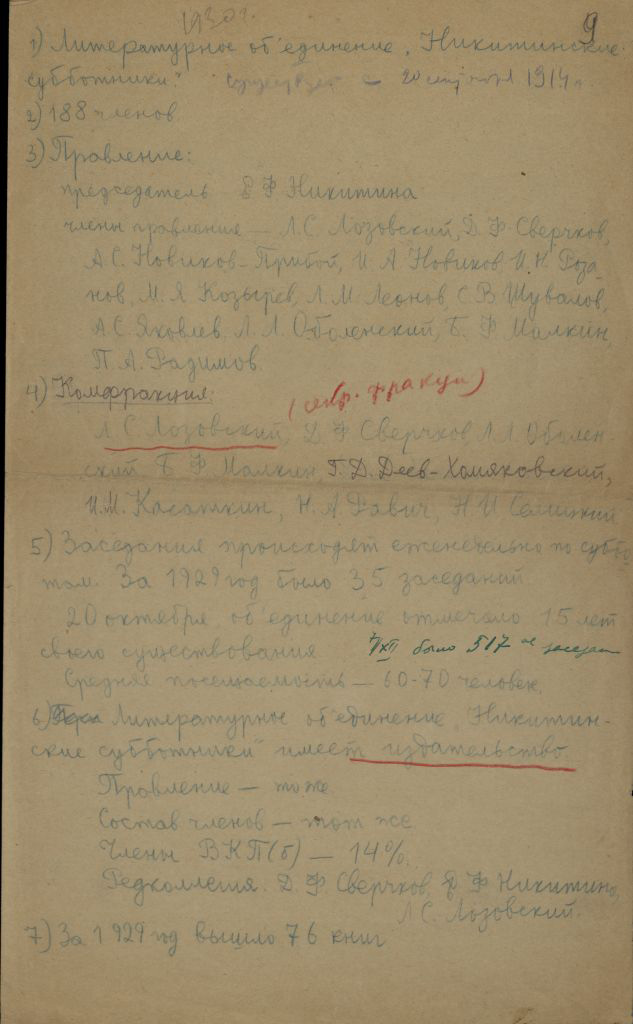 1930 г.
9
1) Литературное об'единение „Никитинские
субботники" существует с 20 октября 1914 г.
2) 188 членов
3) Правление:
председатель Е Ф Никитина
члены правления – Л.С. Лозовский, Д. Ф. Сверчков,
А.С. Новиков-Прибой, И А Новиков, И. Н. Роза-
нов, М. Я Козырев, Л. М. Леонов, С. В Шувалов,
А.С. Яковлев, Л. Л. Оболенский, Б. Ф Малкин,
П. А. Радимов.
4) Комфракция:
(секр. фракции)
Л С. Лозовский, Д Ф Сверчков, Л Л. Оболен-
ский Б Ф Малкин, Г. Д. Деев-Хомяковский,
И.М. Касаткин, Н. А Равич, Н И
5) Заседания происходят еженедельно по суббо-
там. За 1929 год было 35 заседаний
20 октября об'единение отмечало 15 лет
своего существования 7/XII было 517 ое заседан
Средняя посещаемость – 60-70 человек.
6) Литературное об'единение „Никитин-
ские субботники" имеет издательство
Правление – то же
Состав членов – тот же
Члены ВКП(б) – 14%.
Редколлегия. Д. Ф Сверчков, Е Ф Никитина,
Л С. Лозовский.
7) За 1929 год вышло 76 книг